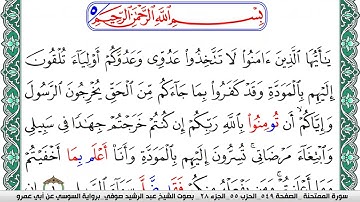 بِسْمِ اللَّهِ الرَّحْمَٰنِ الرَّحِيمِ
يَٰأَيُّهَا الَّذِينَ ءَامَنُوا لَا تَتَّخِذُوا عَدُوِّى وَعَدُوَّكُمْ أَوْلِيَاءَ تُلْقُونَ
إِلَيْهِم بِالْمَوَدَّةِ وَقَد كَّفَرُوا بِمَا جَاءَكُم مِّنَ الْحَقِّ يُخْرِجُونَ الرَّسُولَ
وَإِيَّاكُمْ أَن تُومِنُوا بِاللَّهِ رَبِّكُمْ إِن كُنتُمْ خَرَجْتُمْ جِهَٰدًا فِى سَبِيلِى
وَابْتِغَاءَ مَرْضَاتِى تُسِرُّونَ إِلَيْهِم بِالْمَوَدَّةِ وَأَنَا أَعْلَم بِمَا أَخْفَيْتُمْ
سورة الممتحنة - الصفحة ٥٤٩ - الحزب ٥٥ - الجزء ٢٨ - بصوت الشيخ عبد الرشيد صوفي - برواية السوسي عن أبي عمرو